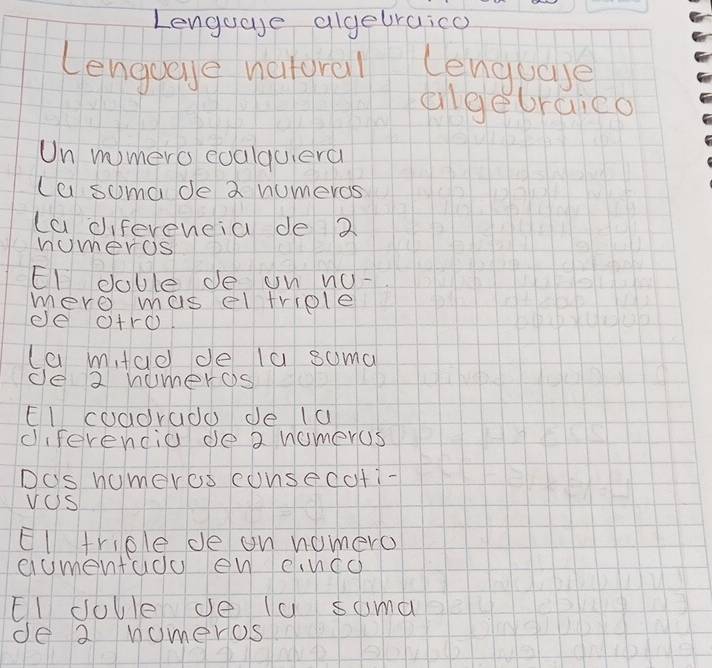 Lenguaje algebraico
Lenguaje natural Lenguaje
algebraico
Un numero cualquiera
La suma de 2 numeros
La diferencia de 2
numeros
El doble de un nu-
mero mas el triple
de otro.
La mitad de la suma
de 2 numeros
El cuadrado de la
diferencia de 2 numeros
Dos numeros consecuti-
vos
El triple de un numero
aumentado en cinco
El doble de la suma
de 2 numeros